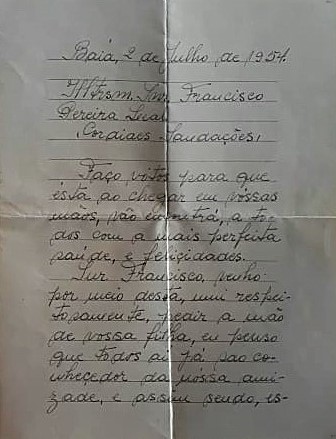 Baiá, 2 de Julho de 1954.
Illtrsm. Snr Francisco
Pereira Leal
Cordiaes Saudações,
Faço vótos para que
ésta ao chegar em vóssas
mãos, vão encontrá, a to-
dos com a mais perfeita
saude, e feliçidades.
Snr Francisco, venho
por meio desta, mui respei-
tosamente, pedir a mão
de vossa filha, eu penso
que todos ai já são co-
nheçedor da nóssa ami-
zade, e assim sendo, es-